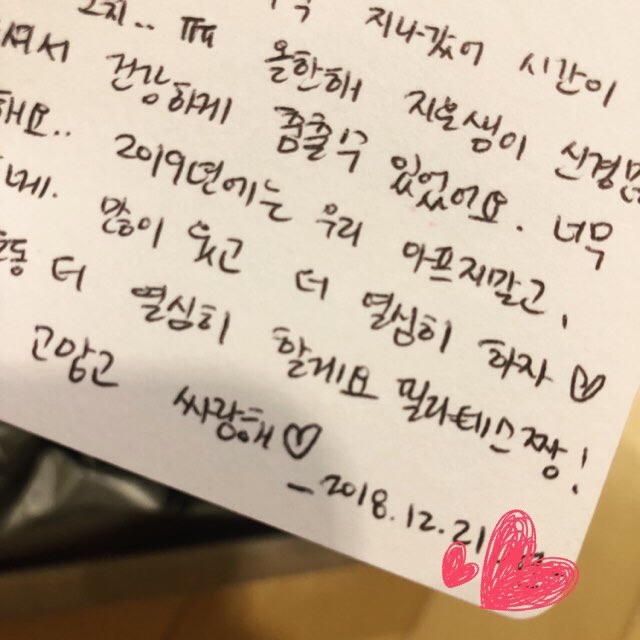 지나갔어 시간이
ㅠㅠ 올한해 지윤샘이
건강하게 춤출수 있었어요. 너무
2019년에는 우리 아프지말고,
많이 웃고 더 열심히 하자 ♡
더 열심히 할게요 필라테스짱!
고맙고 싸랑해♡
- 2018.12.21